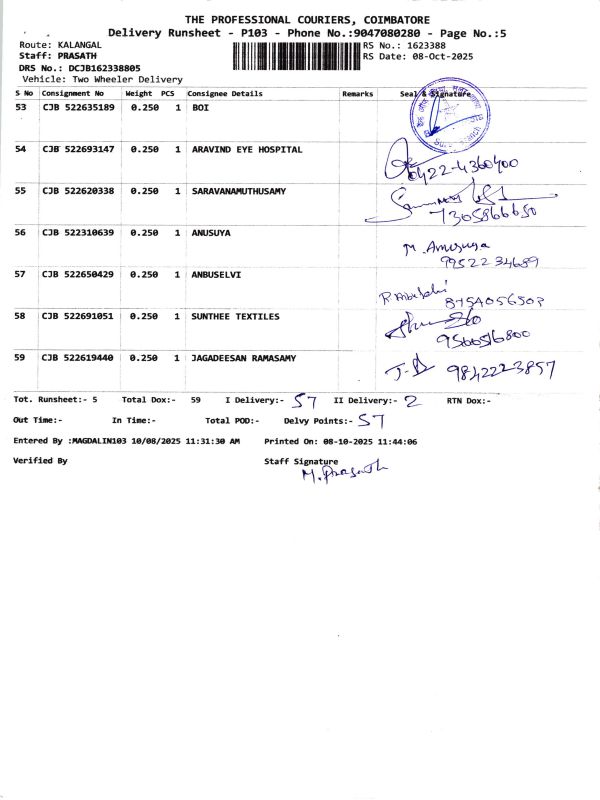 THE PROFESSIONAL COURIERS, COIMBATORE
Delivery Runsheet - P103 - Phone No.:9047080280 - Page No.:5
Route: KALANGAL RS No.: 1623388
Staff: PRASATH RS Date: 08-Oct-2025
DRS No.: DCJB162338805
Vehicle: Two Wheeler Delivery
S No Consignment No Weight PCS Consignee Details Remarks Seal & Signature
53 CJB 522635189 0.250 1 BOI
54 CJB 522693147 0.250 1 ARAVIND EYE HOSPITAL
0422-4360400
55 CJB 522620338 0.250 1 SARAVANAMUTHUSAMY
7305866650
56 CJB 522310639 0.250 1 ANUSUYA
M. Anusuya
9952234689
57 CJB 522650429 0.250 1 ANBUSELVI
8754056503
58 CJB 522691051 0.250 1 SUNTHEE TEXTILES
9566516800
59 CJB 522619440 0.250 1 JAGADEESAN RAMASAMY
9842223857
Tot. Runsheet:- 5 Total Dox:- 59 I Delivery:- 57 II Delivery:- 2 RTN Dox:-
Out Time:- In Time:- Total POD:- Delvy Points:- 57
Entered By :MAGDALIN103 10/08/2025 11:31:30 AM Printed On: 08-10-2025 11:44:06
Verified By Staff Signature
M. Prasath